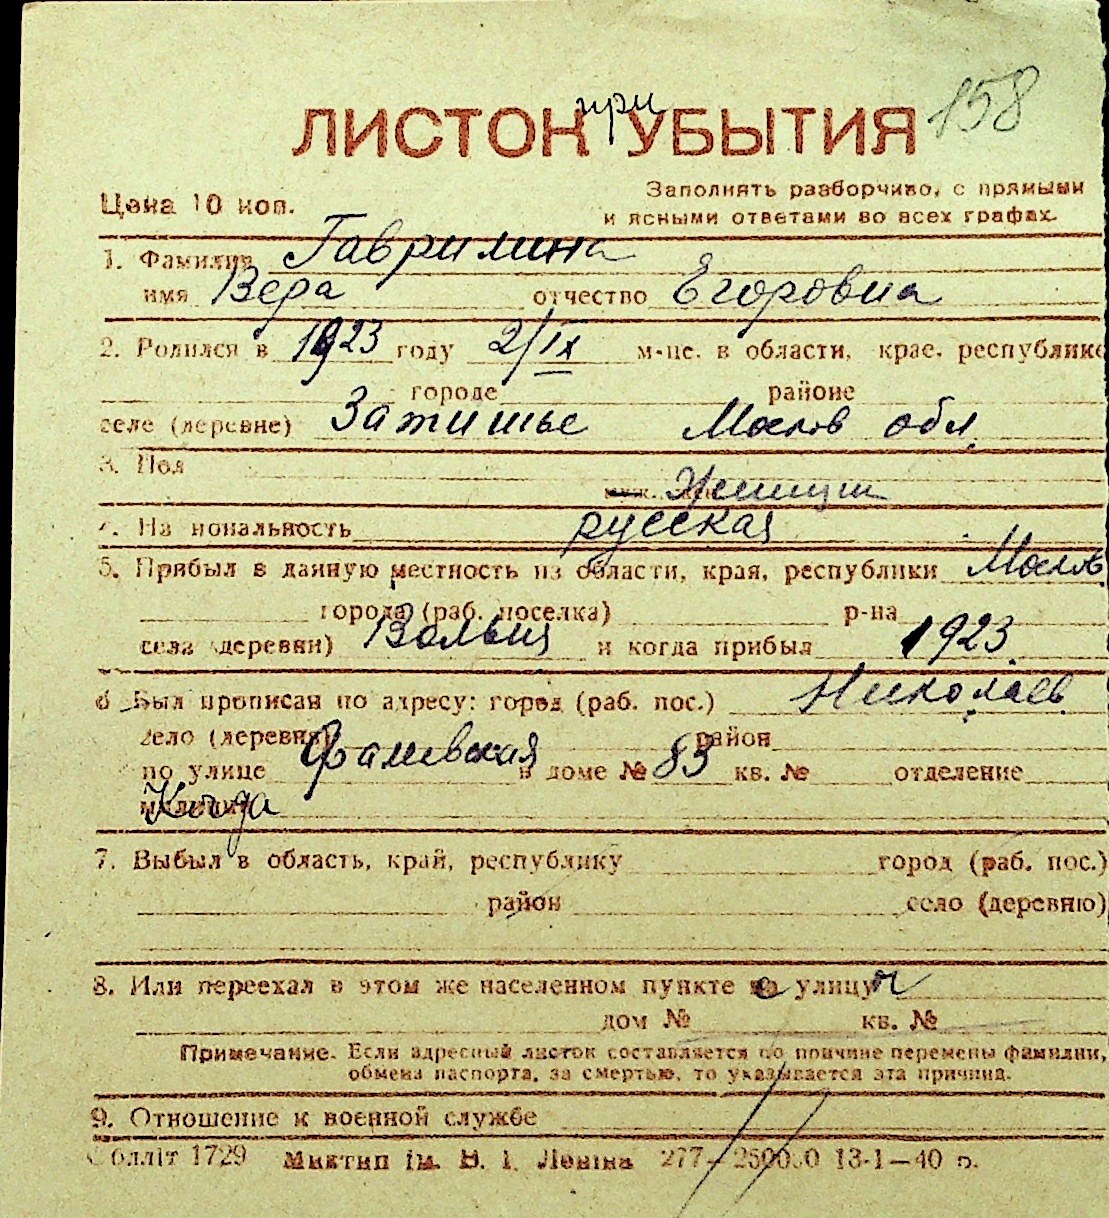 158
при
ЛИСТОК УБЫТИЯ
Цена 10 коп.
Заполнять разборчиво, с прямыми
и ясными ответами во всех графах.
1. Фамилия Гаврилина
имя Вера отчество Егоровна
2. Родился в 1923 году 2/IX м-це. в области, крае, республике
городе районе
селе (деревне) Затишье Москов обл.
3. Пол
муж. Женщин
4. Национальность русская
5. Прибыл в данную местность из области, края, республики Москов
города (раб. поселка) р-на
села (деревни) и когда прибыл 1923
6. Был прописан по адресу: город (раб. пос.) Николаев
село (деревня) район
по улице Фалеевская в доме № 83 кв. № отделение
милиции
7. Выбыл в область, край, республику город (раб. пос.)
район село (деревню)
8. Или переехал в этом же населенном пункте улицу
дом № кв. №
Примечание. Если адресный листок составляется по причине перемены фамилии,
обмена паспорта, за смертью, то указывается эта причина.
9. Отношение к военной службе
Облліт 1729 Миктип ім. В. І. Леніна 277— 250000 13-1—40 р.